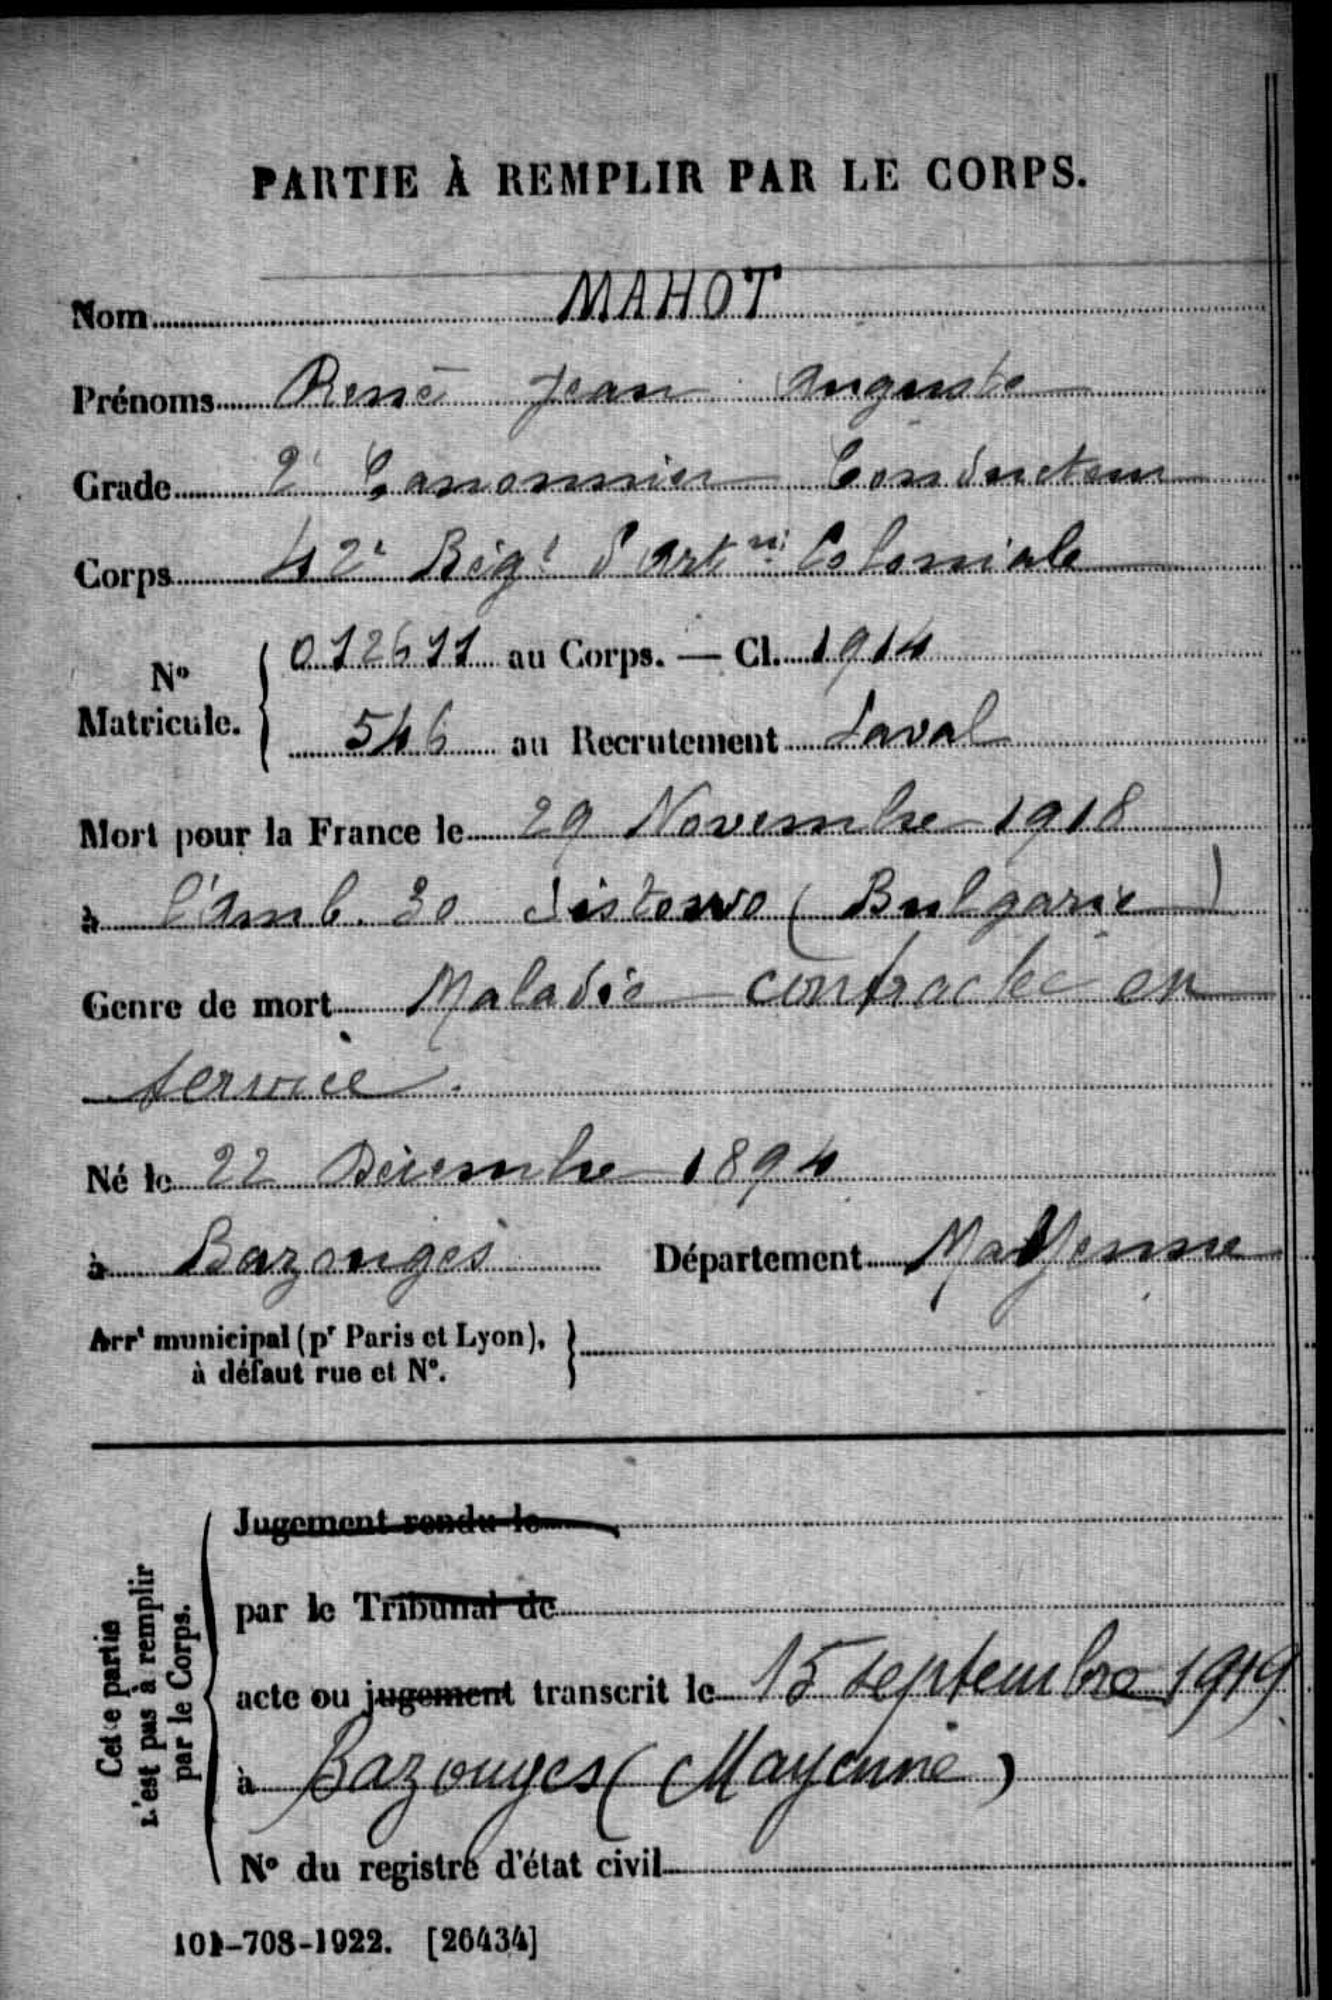 PARTIE À REMPLIR PAR LE CORPS.
Nom MAHOT
Prénoms René Jean Auguste
Grade 2e Canonnier Conducteur
Corps 42e Régt d'Artrie Coloniale
No Matricule. 012611 au Corps. — Cl. 1914
546 au Recrutement Laval
Mort pour la France le 29 Novembre 1918
à l'Amb. 30 Sistowo (Bulgarie)
Genre de mort Maladie contractée en
service.
Né le 22 Décembre 1894
à Bazouges Département Mayenne
Arrt municipal (pr Paris et Lyon),
à défaut rue et No.
Cette partie
n'est pas à remplir
par le Corps.
Jugement rendu le
par le Tribunal de
acte ou jugement transcrit le 15 septembre 1919
à Bazouges (Mayenne)
No du registre d'état civil
101-708-1922. [26434]